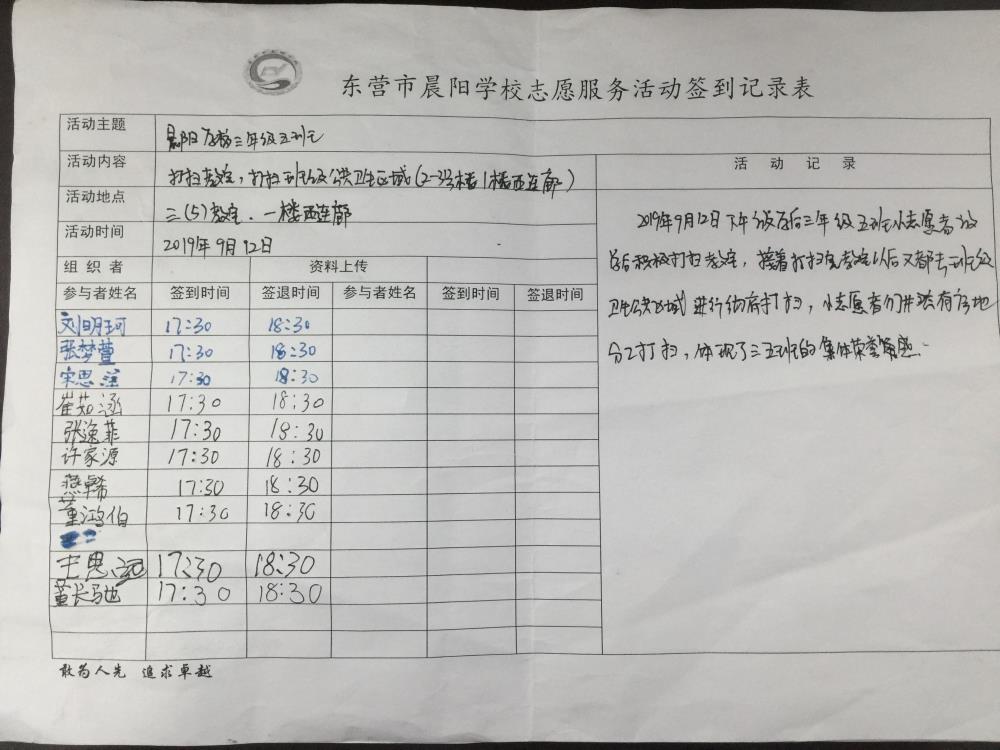 东营市晨阳学校志愿服务活动签到记录表
活动主题 晨阳学校三年级五班
活动内容 打扫教室,打扫班级及公共卫生区域(2-3号楼1楼西连廊)
活动地点 三(5)教室、一楼西连廊
活动时间 2019年9月12日
组织者 资料上传
参与者姓名 签到时间 签退时间 参与者姓名 签到时间 签退时间
刘明珂 17:30 18:30
张梦萱 17:30 18:30
宋思滢 17:30 18:30
崔茹涵 17:30 18:30
张逸菲 17:30 18:30
许家源 17:30 18:30
燕稀 17:30 18:30
董鸿伯 17:30 18:30
王思 17:30 18:30
董长驰 17:30 18:30
活动记录
2019年9月12日下午放学后三年级五班小志愿者放
学后积极打扫教室,接着打扫完教室以后又都去班级
卫生公共区域进行彻底打扫,小志愿者们井然有序地
分工打扫,体现了三五班的集体荣誉感.
敢为人先 追求卓越